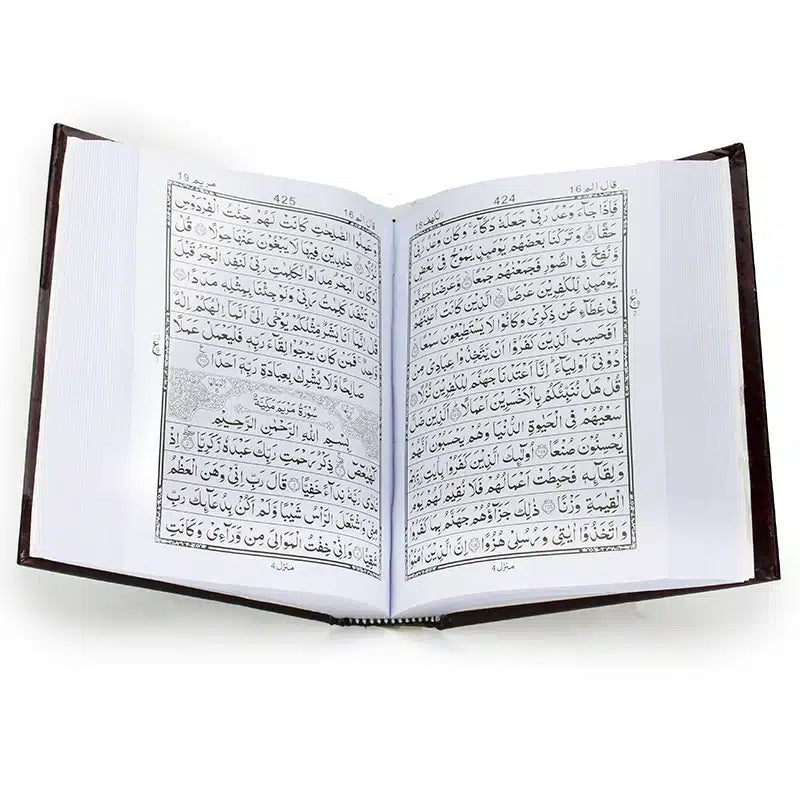 قال الم 16
424
الكهف 18
فَاِذَا جَآءَ وَعْدُ رَبِّىْ جَعَلَهٗ دَكَّآءَ ۚ وَكَانَ وَعْدُ رَبِّىْ
حَقًّا وَتَرَكْنَا بَعْضَهُمْ يَوْمَئِذٍ يَّمُوْجُ فِىْ بَعْضٍ
وَّنُفِخَ فِى الصُّوْرِ فَجَمَعْنٰهُمْ جَمْعًا وَّعَرَضْنَا جَهَنَّمَ
يَوْمَئِذٍ لِّلْكٰفِرِيْنَ عَرْضًا الَّذِيْنَ كَانَتْ اَعْيُنُهُمْ
فِىْ غِطَآءٍ عَنْ ذِكْرِىْ وَكَانُوْا لَا يَسْتَطِيْعُوْنَ سَمْعًا
اَفَحَسِبَ الَّذِيْنَ كَفَرُوْٓا اَنْ يَّتَّخِذُوْا عِبَادِىْ مِنْ
دُوْنِىْٓ اَوْلِيَآءَ ؕ اِنَّآ اَعْتَدْنَا جَهَنَّمَ لِلْكٰفِرِيْنَ نُزُلًا
قُلْ هَلْ نُنَبِّئُكُمْ بِالْاَخْسَرِيْنَ اَعْمَالًا اَلَّذِيْنَ ضَلَّ
سَعْيُهُمْ فِى الْحَيٰوةِ الدُّنْيَا وَهُمْ يَحْسَبُوْنَ اَنَّهُمْ
يُحْسِنُوْنَ صُنْعًا اُولٰٓئِكَ الَّذِيْنَ كَفَرُوْا بِاٰيٰتِ رَبِّهِمْ
وَلِقَآئِهٖ فَحَبِطَتْ اَعْمَالُهُمْ فَلَا نُقِيْمُ لَهُمْ يَوْمَ
الْقِيٰمَةِ وَزْنًا ذٰلِكَ جَزَآؤُهُمْ جَهَنَّمُ بِمَا كَفَرُوْا
وَاتَّخَذُوْٓا اٰيٰتِىْ وَرُسُلِىْ هُزُوًا اِنَّ الَّذِيْنَ اٰمَنُوْا
منزل 4
قال الم 16
425
مريم 19
وَعَمِلُوا الصّٰلِحٰتِ كَانَتْ لَهُمْ جَنّٰتُ الْفِرْدَوْسِ
نُزُلًا خٰلِدِيْنَ فِيْهَا لَا يَبْغُوْنَ عَنْهَا حِوَلًا قُلْ
لَّوْ كَانَ الْبَحْرُ مِدَادًا لِّكَلِمٰتِ رَبِّىْ لَنَفِدَ الْبَحْرُ قَبْلَ
اَنْ تَنْفَدَ كَلِمٰتُ رَبِّىْ وَلَوْ جِئْنَا بِمِثْلِهٖ مَدَدًا
قُلْ اِنَّمَآ اَنَا بَشَرٌ مِّثْلُكُمْ يُوْحٰٓى اِلَىَّ اَنَّمَآ اِلٰهُكُمْ اِلٰهٌ
وَّاحِدٌ ۚ فَمَنْ كَانَ يَرْجُوْا لِقَآءَ رَبِّهٖ فَلْيَعْمَلْ عَمَلًا
صَالِحًا وَّلَا يُشْرِكْ بِعِبَادَةِ رَبِّهٖٓ اَحَدًا
سُوْرَةُ مَرْيَمَ مَكِّيَّةٌ
بِسْمِ اللهِ الرَّحْمٰنِ الرَّحِيْمِ
كٓهٰيٰعٓصٓ ذِكْرُ رَحْمَتِ رَبِّكَ عَبْدَهٗ زَكَرِيَّا اِذْ
نَادٰى رَبَّهٗ نِدَآءً خَفِيًّا قَالَ رَبِّ اِنِّىْ وَهَنَ الْعَظْمُ
مِنِّىْ وَاشْتَعَلَ الرَّاْسُ شَيْبًا وَّلَمْ اَكُنْ بِدُعَآئِكَ رَبِّ
شَقِيًّا وَاِنِّىْ خِفْتُ الْمَوَالِىَ مِنْ وَّرَآءِىْ وَكَانَتِ
منزل 4